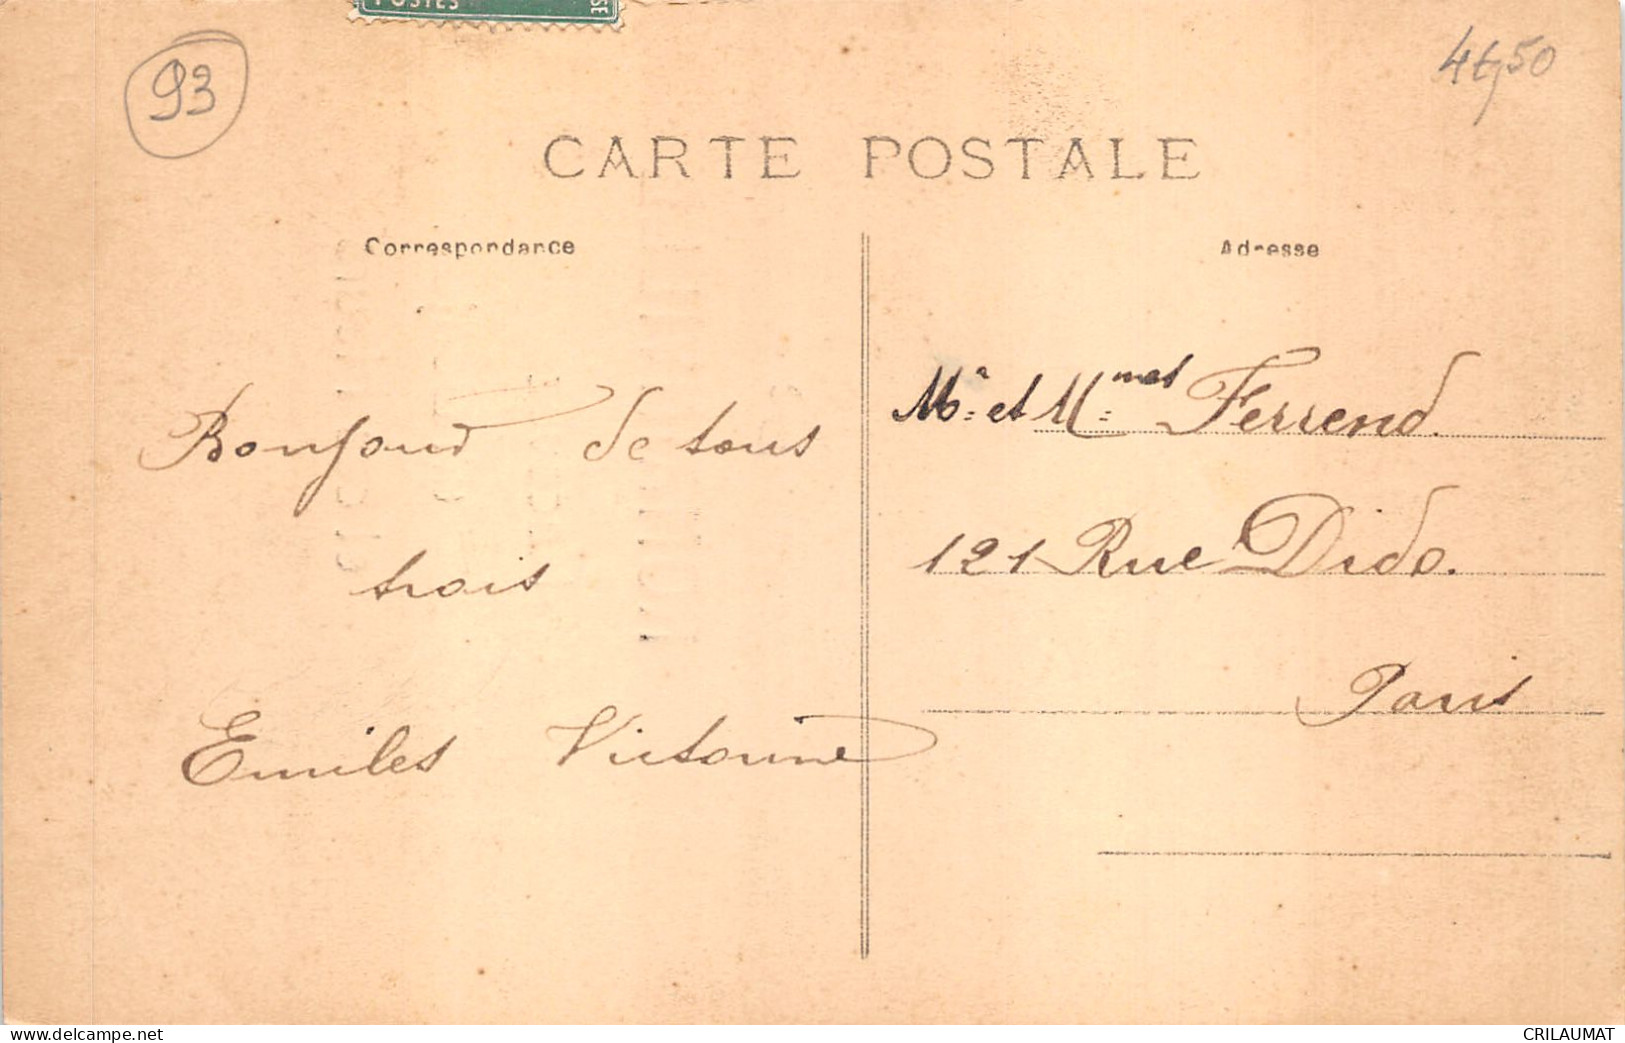 POSTES
93
4t,50
CARTE POSTALE
Correspondance
Bonjour de tous
trois
Emiles Victorine
Adresse
Mr. et Mmes Ferrend.
121 Rue Dido.
Paris
www.delcampe.net
CRILAUMAT